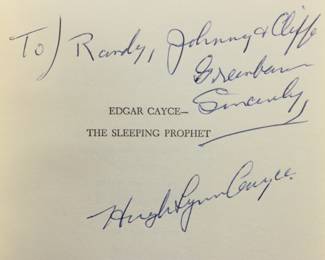 To/ Randy, Johnny & Cliffe
Greenbaum
Sincerely,
EDGAR CAYCE—
THE SLEEPING PROPHET
Hugh Lynn Cayce.